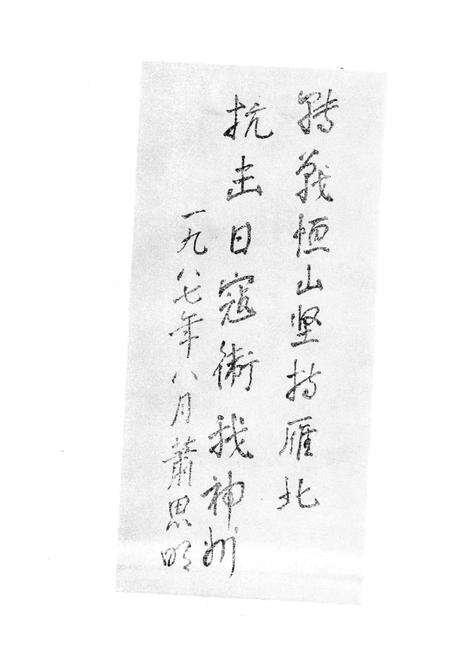 转戰恒山坚持雁北
抗击日寇衛我神州
一九八七年八月蕭思明